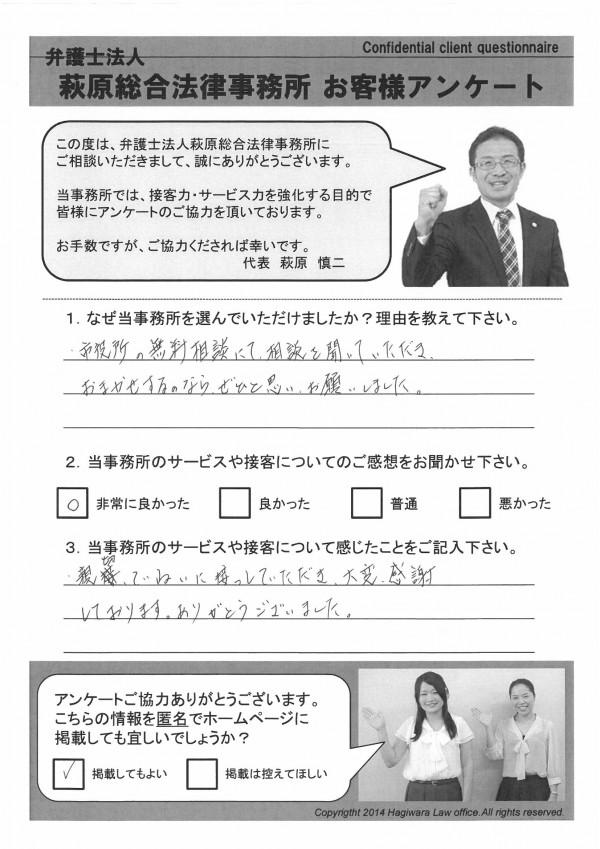 Confidential client questionnaire
弁護士法人
萩原総合法律事務所 お客様アンケート
この度は、弁護士法人萩原総合法律事務所に
ご相談いただきまして、誠にありがとうございます。
当事務所では、接客力・サービス力を強化する目的で
皆様にアンケートのご協力を頂いております。
お手数ですが、ご協力くだされば幸いです。
代表 萩原 慎二
1. なぜ当事務所を選んでいただけましたか？理由を教えて下さい。
・市役所の無料相談にて、相談を聞いていただき、
おまかせするのなら、ぜひと思い、お願いしました。
2. 当事務所のサービスや接客についてのご感想をお聞かせ下さい。
○ 非常に良かった 良かった 普通 悪かった
3. 当事務所のサービスや接客について感じたことをご記入下さい。
・親切、ていねいに接っしていただき、大変、感謝
しております。ありがとうございました。
アンケートご協力ありがとうございます。
こちらの情報を匿名でホームページに
掲載しても宜しいでしょうか？
✓ 掲載してもよい 掲載は控えてほしい
Copyrigtht 2014 Hagiwara Law office.All rights reserved.